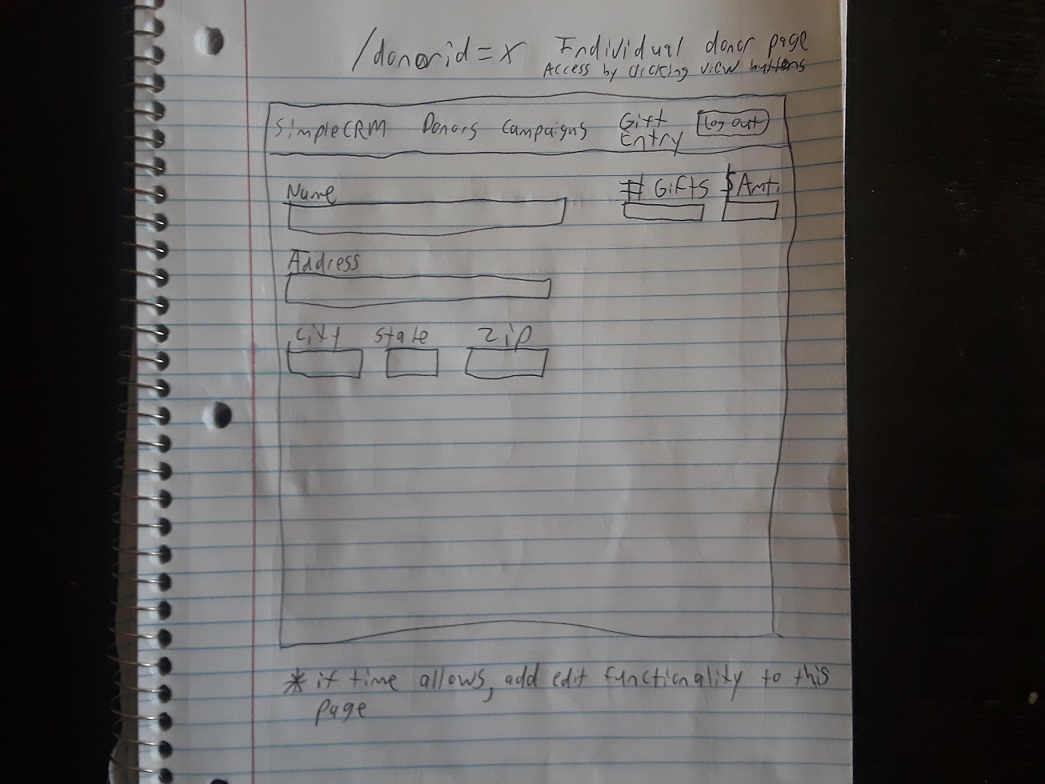 /donorid=x Individual donor page
Access by clicking view buttons
SimpleCRM Donors Campaigns Gift Entry Log out
Name # Gifts $Amt.
Address
City State Zip
* if time allows, add edit functionality to this
page